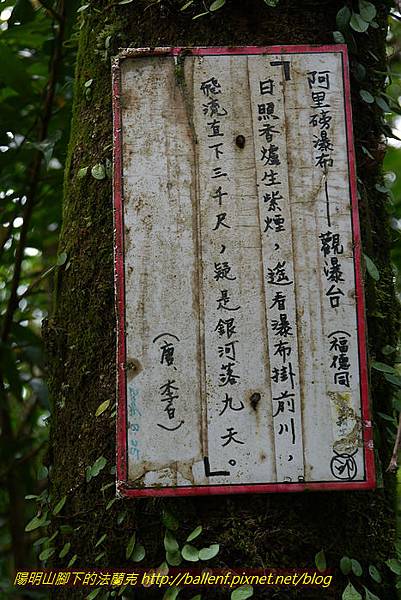 阿里磅瀑布──觀瀑台(福德同
『日照香爐生紫煙,遙看瀑布掛前川,
飛流直下三千尺,疑是銀河落九天。』
(唐 李白)
陽明山腳下的法蘭克 http://ballenf.pixnet.net/blog